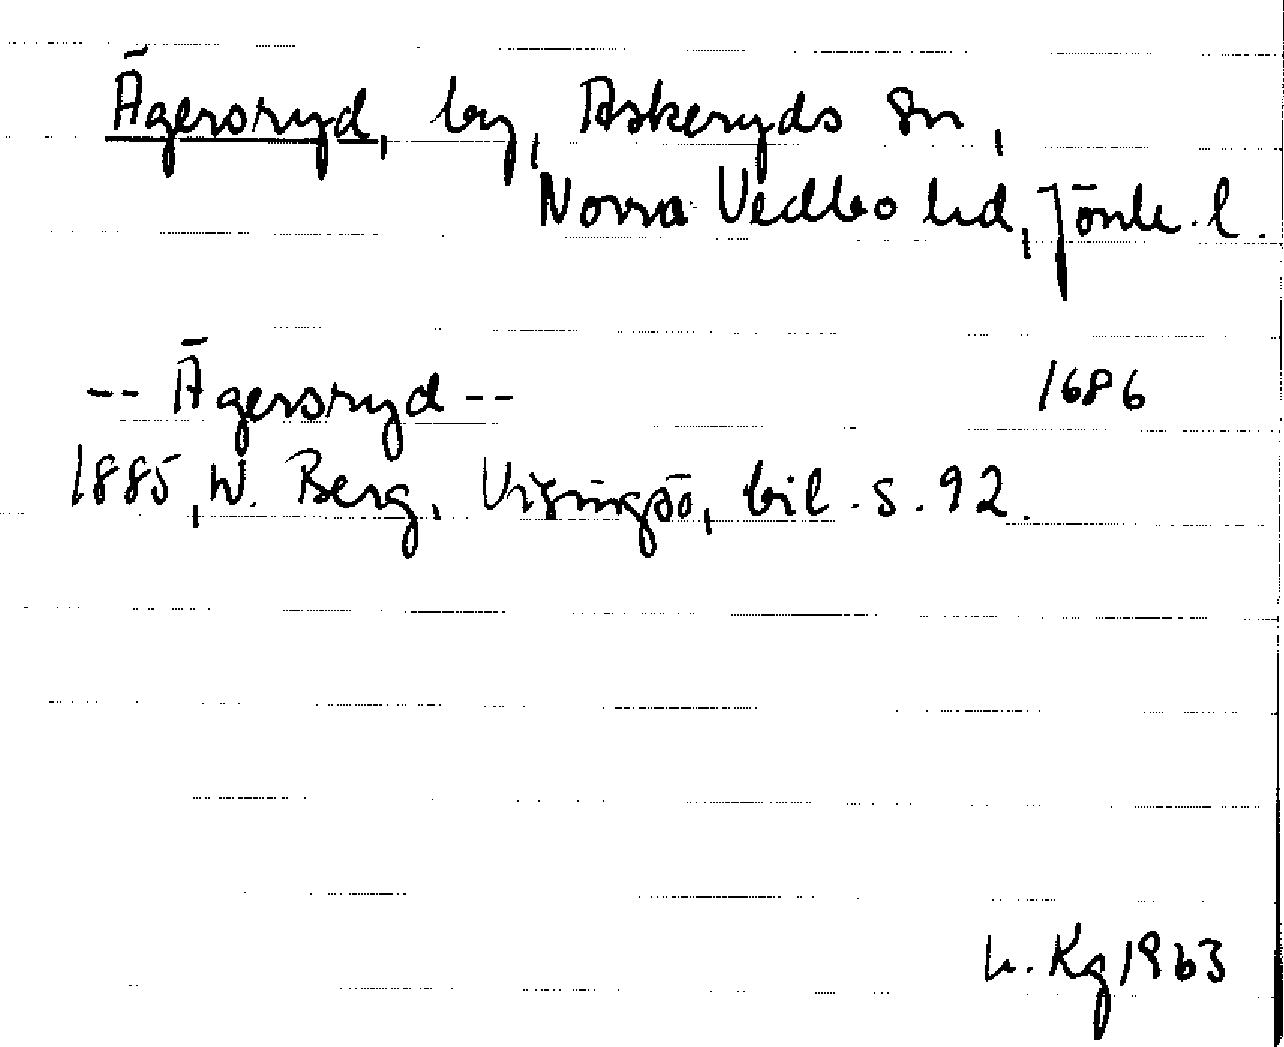 Ägersryd, by, Askeryds sn,
Norra Vedbo hd, Jönk. l.
-- Ägersryd -- 1686
1885, W. Berg, Visingsö, bil. s. 92.
h. Kg 1963